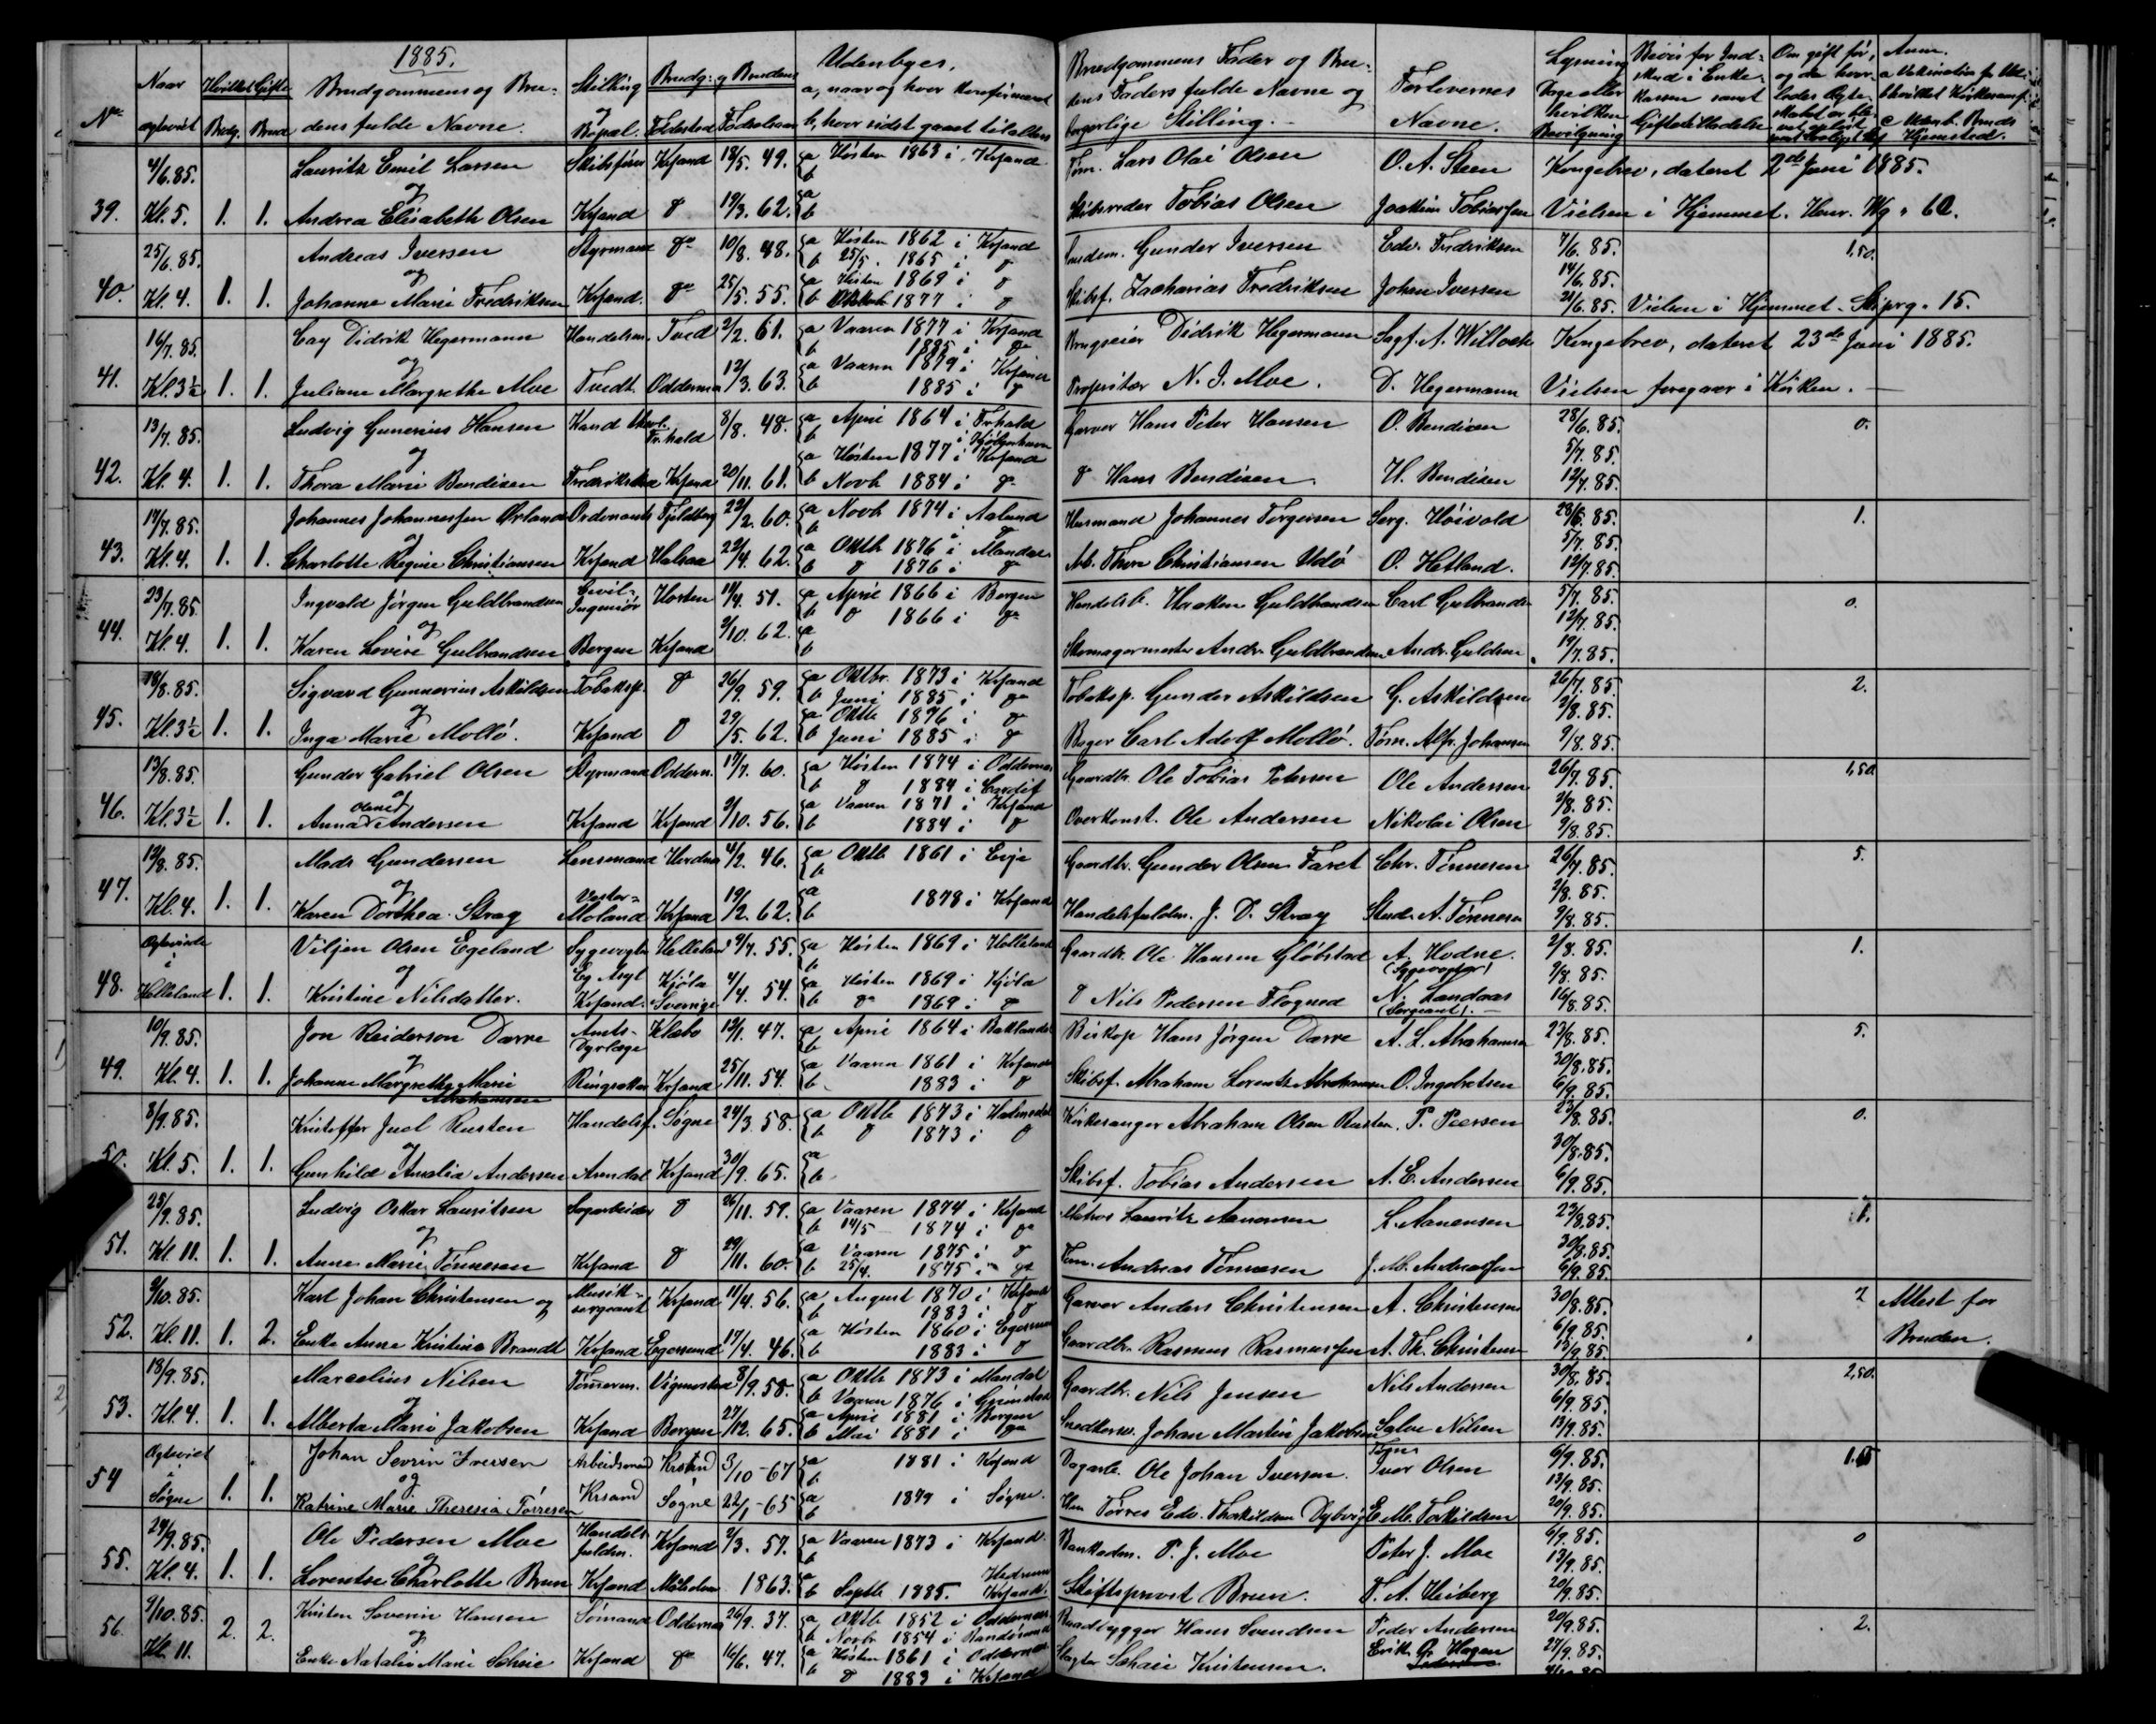 1885.
No. Naar Hvilket Gifte Brudgommens og Bru- Stilling Brudg: og Brudens Udenbyes.
agtviet Brudg. Brud dens fulde Navne. og Bopæl. Fødested Fødselsaar a, naar og hvor Konfirmeret b, hvor sidst gaaet til alters
Brudgommens Fader og Bru- dens Faders fulde Navne og borgerlige Stilling. Forlovernes Navne. Lysning Dage eller hvilken Bevilgning Bevis for Ind- skud i Enke- Kassen samt Giftetilladelse Om gift før, og da hvor- ledes Anm.
4/6.85. Lauritz Emil Larsen Skibsfører Krsand 18/5. 49. a Høsten 1863 i Krsand Tøm. Lars Olai Olsen O. A. Steen Kongebrev, dateret 2de Juni 1885.
og b
39. Kl. 5. 1. 1. Andrea Elisabeth Olsen Krsand do 19/3. 62. a b Skibsreder Tobias Olsen Joakim Tobiassen Vielsen i Hjemmet. Henr. Wg. 60.
25/6.85. Andreas Iversen Styrmand do 10/8. 48. a Høsten 1862 i Krsand Gunder Iversen Edv. Fredriksen 7/6.85. 1,50.
og b 25/5. 1865 i do 14/6.85.
40. Kl. 4. 1. 1. Johanne Marie Fredriksen Krsand. do 25/5. 55. a Høsten 1869 i do b Oktob 1877 i do Skibsf. Zacharias Fredriksen Johan Iversen 21/6.85. Vielsen i Hjemmet. 15.
16/7.85. Cay Didrik Hegermann Handelsm. Tved 2/2. 61. a Vaaren 1877 i Krsand Brugseier Didrik Hegermann Sagf. A. Willoch Kongebrev, dateret 23de Juni 1885.
og b 1885 i do
41. Kl. 3½ 1. 1. Juliane Margrethe Moe Tvedt. Oddernes 12/3. 63. a Vaaren 1879 i Krsand b 1885 i do Proprietær N. J. Moe. D. Hegermann Vielsen foregaar i Kirken.
13/7.85. Ludvig Gunerius Hansen Kand theol. Fr.hald 8/8. 48. a April 1864 i Frhald Garver Hans Peter Hansen O. Bendixen 28/6.85. 0.
og b i Kjøbenhavn 5/7.85.
42. Kl. 4. 1. 1. Thora Marie Bendixen Fredrikshald Krsand 20/11. 61. a Høsten 1877 i Krsand b Novb 1884 i do do Hans Bendixen H. Bendixen 12/7.85.
14/7.85. Johannes Johannessen Ørland Ordonants Fjeldberg 22/2. 60. a Novb 1874 i Aalund Husmand Johannes Torgersen Serg. Høivold 28/6.85. 1.
og b 5/7.85.
43. Kl. 4. 1. 1. Charlotte Regine Christiansen Krsand Halsaa 22/4. 62. a Oktb 1876 i Mandal b do 1876 i do Arb. Thore Christiansen Udø O. Hetland. 12/7.85.
23/7.85. Ingvald Jørgen Guldbrandsen Civil- Ingeniør Horten 11/4. 51. a April 1866 i Bergen b do 1866 i do Handelsb. Haaken Guldbrandsen Carl Gulbrandsen 5/7.85. 0.
og 12/7.85.
44. Kl. 4. 1. 1. Karen Lovise Gulbrandsen Bergen Krsand 2/10. 62. a b Skomagermester Andr. Guldbrandsen Andr. Guldsen. 19/7.85.
18/8.85. Sigvard Gunnerius Askildsen Tobaksp. do 26/9. 59. a Oktbr. 1873 i Krsand b Juni 1885 i do Tobaksp. Gunder Askildsen G. Askildsen 26/7.85. 2.
og 2/8.85.
45. Kl. 3½ 1. 1. Inga Marie Mollø. Krsand do 29/5. 62. a Oktb 1876 i do b Juni 1885 i do Bager Carl Adolf Mollø. Tøm. Alfr. Johansen 9/8.85.
13/8.85. Gunder Gabriel Olsen Styrmand Oddern. 17/7. 60. a Høsten 1874 i Oddernes b do 1884 i Cardif Gaardbr. Ole Tobias Petersen Ole Andersen 26/7.85. 1,50
og 2/8.85.
46. Kl. 3½ 1. 1. Anna Andersen Krsand Krsand 3/10. 56. a Vaaren 1871 i Krsand b 1884 i do Overkonst. Ole Andersen Nikolai Olsen 9/8.85.
12/8.85. Mads Gundersen Lensmand 4/2. 46. a Oktb 1861 i Evje b Gaardbr. Gunder Olsen Faret Chr. Tønnesen 26/7.85. 5.
og 2/8.85.
47. Kl. 4. 1. 1. Karen Dorthea Stray Vester- Moland Krsand 19/2. 62. a b 1878 i Krsand Handelsfuldm. J. D. Stray Stud. A. Tønnesen 9/8.85.
Agtviede Viljen Olsen Egeland Sygevogter Helleland 29/7. 55. a Høsten 1869 i Helleland b Gaardbr. Ole Hansen Gløbstad A. Hodne. (Sygevogter) 2/8.85. 1.
i og 9/8.85.
48. Helleland 1. 1. Kristine Nilsdatter. Eg Asyl Krsand. Kjøla Sverige 4/4. 54. a Høsten 1869 i Kjøla b do 1869 i do do Nils Pedersen Flogned N. Landaas (Sergeant). 16/8.85.
10/9.85. Jon Reiderson Darre Amts- Dyrlæge Klæbo 12/1. 47. a April 1864 i Baklandet b Biskop Hans Jørgen Darre A. L. Abrahamsen 23/8.85. 5.
og 30/8.85.
49. Kl. 4. 1. 1. Johanne Margrethe Marie Abrahamsen Ringsaker Krsand. 25/11. 54. a Vaaren 1861 i Krsand b 1883 i do Skibsf. Abraham Lorents Abrahamsen O. Ingebretsen 6/9.85.
8/9.85. Kristoffer Juel Rusten Handelsf. Søgne 24/3. 58. a Oktb 1873 i Halmedal b do 1873 i do Kirkesanger Abraham Olsen Rusten. P. Peersen 23/8.85. 0.
og 30/8.85.
50. Kl. 5. 1. 1. Gunhilde Amalia Andersen Arendal Krsand 30/9. 65. a b Skibsf. Tobias Andersen A. E. Andersen 6/9.85.
25/9.85. Ludvig Oskar Lauritsen Sagarbeider do 26/11. 51. a Vaaren 1874 i Krsand b 14/5 1874 i do Matros Lauritz Aanonsen L. Aanensen 23/8.85. 1.
og 30/8.85.
51. Kl. 11. 1. 1. Anne Marie Tønnesen Krsand do 29/11. 60. a Vaaren 1875 i do b 25/4. 1875 i do Tøm. Andreas Tønnesen J. M. Andreassen 6/9.85.
9/10.85. Karl Johan Christensen og Musik- sergeant Krsand 11/4. 56. a August 1870 i Krsand b 1883 i do Garver Anders Christensen A. Christensen 30/8.85. 2 Attest for
6/9.85.
52. Kl. 11. 1. 2. Enke Anne Kristine Brandt Krsand Egersund 17/4. 46. a Høsten 1860 i Egersund b 1883 i do Gaardbr. Rasmus Rasmussen A. Th. Christensen 13/9.85 Bruden.
18/9.85. Marcelius Nilsen Tømmerm. Vigmostad 8/9. 58. a Oktb 1873 i Mandal b Vaaren 1876 i Grimstad Gaardbr. Nils Jensen Nils Andersen 30/8.85. 2,50.
og 6/9.85.
53. Kl. 4. 1. 1. Alberta Marie Jakobsen Krsand Bergen 27/12. 65. a April 1881 i Bergen b Mai 1881 i do Snedkersv. Johan Martin Jakobsen Salve Nilsen 13/9.85.
Agteviet Johan Sevrin Iversen Arbeidsmand Krsand 3/10-67 a 1881 i Krsand b Dagarb. Ole Johan Iversen. Iver Olsen 6/9.85.
i og. 13/9.85.
54 Søgne 1. 1. Katrine Marie Theresia Tørresen Krsand Søgne 22/1-65 a 1879 i Søgne. b Tørres Edv. Thorkildsen Dybvig E. M. Torkildsen 20/9.85.
24/9.85. Ole Pedersen Moe Handels fuldm. Krsand 2/3. 57. a Vaaren 1873 i Krsand b Bankadm. P. J. Moe Peter J. Moe 6/9.85. 0
og 13/9.85.
55. Kl. 4. 1. 1. Lorentse Charlotte Brun Krsand 1863. a Hedrum b Septb 1885. Krsand. Stiftsprovst Brun. F. A. Heiberg 20/9.85.
9/10.85. Kristen Severin Hansen Sømand Oddernes 26/9. 37. a Oktb 1852 i Oddernes b Novbr 1854 i Randøsund Baadbygger Hans Svendsen Peder Andersen 20/9.85. 2.
56. 2. 2. og
Kl. 11. Enke Natalie Marie Scheie Krsand do 16/6. 47. a Høsten 1861 i Oddernes b do 1883 i Krsand Slagter Schaie Kristensen. Erik Hagen 27/9.85.